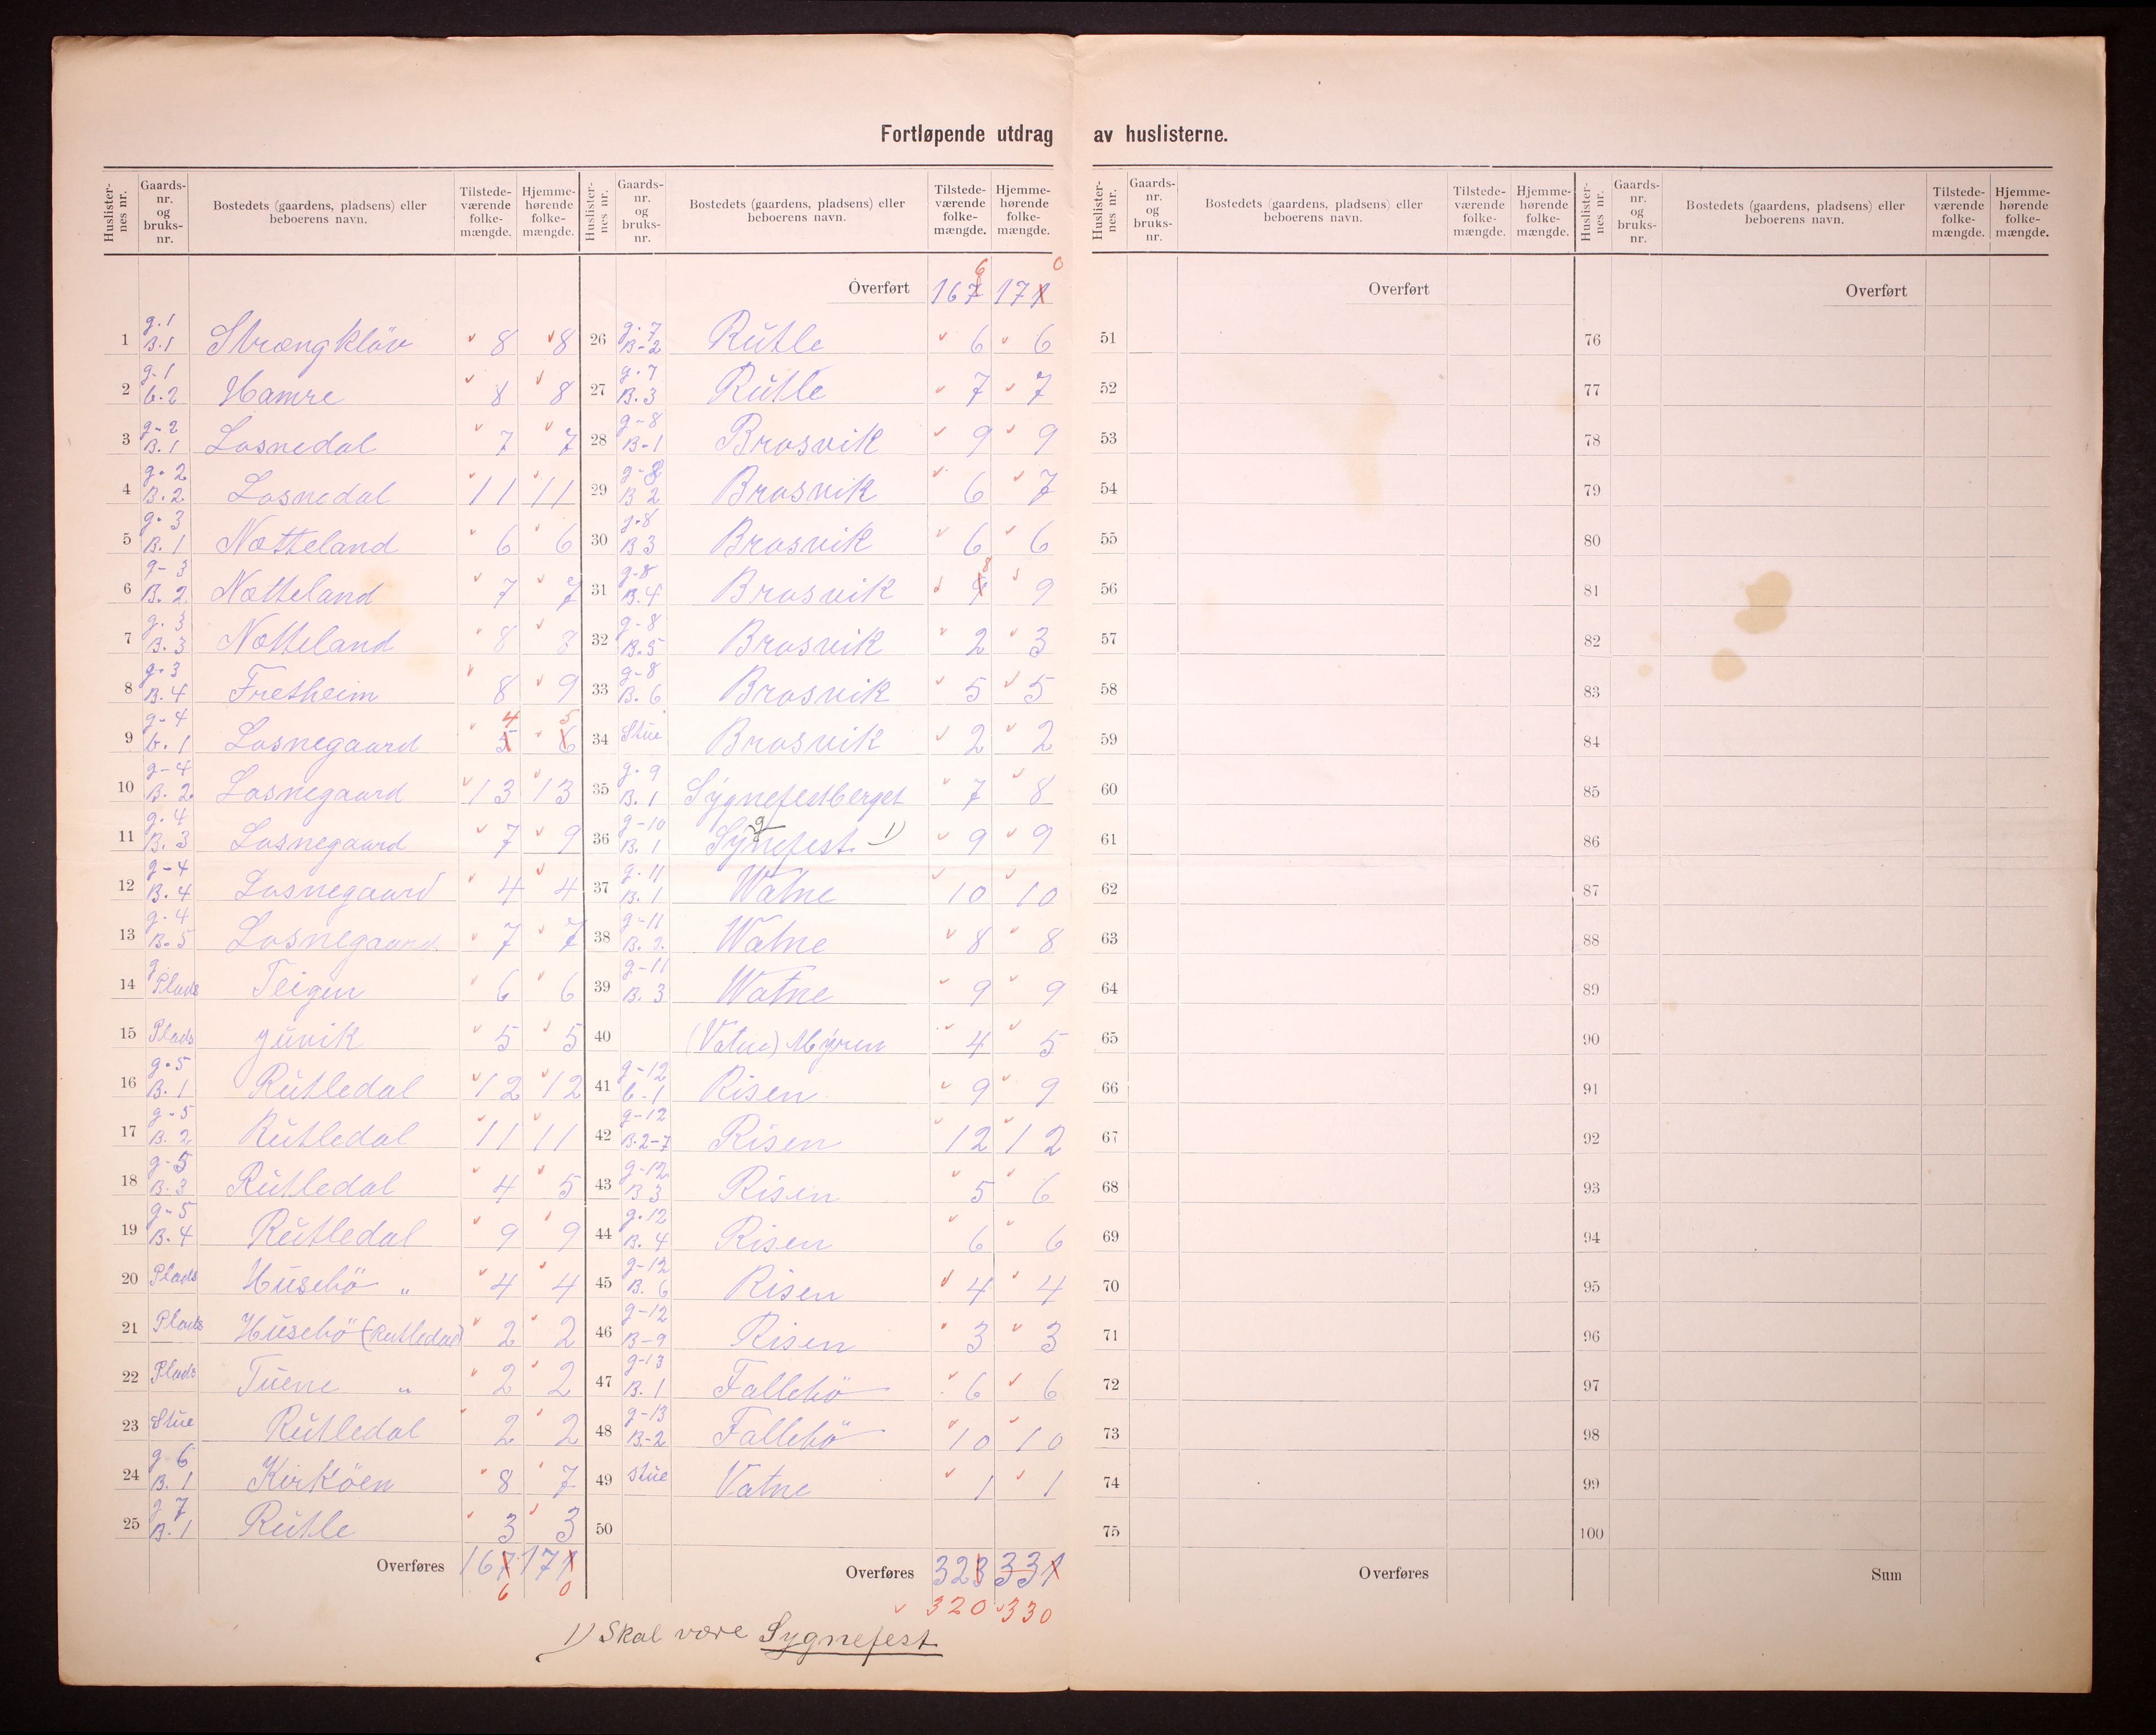 Fortløpende utdrag av huslisterne.
Huslisternes nr. Gaards-nr. og bruks-nr. Bostedets (gaardens, pladsens) eller beboerens navn. Tilstedeværende folkemængde. Hjemmehørende folkemængde.
1 g. 1 B. 1 Strængkløv 8 8
2 g. 1 b. 2 Hamre 8 8
3 g-2 B. 1 Losnedal 7 7
4 g. 2 B. 2 Losnedal 11 11
5 g. 3 B. 1 Nøtteland 6 6
6 g-3 B. 2 Nøtteland 7 7
7 g. 3 B. 3 Nøtteland 8 8
8 g. 3 B. 4 Fretheim 8 9
9 g-4 b. 1 Losnegaard 5 4 6 5
10 g-4 B. 2 Losnegaard 13 13
11 g. 4 B. 3 Losnegaard 7 9
12 g-4 B. 4 Losnegaard 4 4
13 g. 4 B. 5 Losnegaard 7 7
14 g. Plads Teigen 6 6
15 Plads Juvik 5 5
16 g. 5 B. 1 Rutledal 12 12
17 g-5 B. 2 Rutledal 11 11
18 g-5 B. 3 Rutledal 4 5
19 g-5 B. 4 Rutledal 9 9
20 Plads Husebö " 4 4
21 Plads Husebö (Rutledal) 2 2
22 Plads Tuene " 2 2
23 Stue Rutledal 2 2
24 g 6 B. 1 Kirköen 8 7
25 g 7 B. 1 Rutle 3 3
Overføres 167 171
6 0
Huslisternes nr. Gaards-nr. og bruks-nr. Bostedets (gaardens, pladsens) eller beboerens navn. Tilstedeværende folkemængde. Hjemmehørende folkemængde.
6 0
Overført 167 171
26 g. 7 B-2 Rutle 6 6
27 g. 7 B. 3 Rutle 7 7
28 g-8 B-1 Brosvik 9 9
29 g-8 B 2 Brosvik 6 7
30 g. 8 B 3 Brosvik 6 6
31 g-8 B. 4 Brosvik 9 8 9
32 g-8 B. 5 Brosvik 2 3
33 g-8 B. 6 Brosvik 5 5
34 Stue Brosvik 2 2
35 g. 9 B. 1 Sygnefestberget 7 8
36 g-10 B. 1 Sygnefest 1) 9 9
37 g. 11 B. 1 Watne 10 10
38 g-11 B. 2. Watne 8 8
39 g-11 B. 3 Watne 9 9
40 (Vatne) Myren 4 5
41 g-12 b. 1 Risen 9 9
42 g-12 B. 2-7 Risen 12 12
43 g-12 B 3 Risen 5 6
44 g. 12 B. 4 Risen 6 6
45 g-12 B. 6 Risen 4 4
46 g-12 B-9 Risen 3 3
47 g-13 B. 1 Fallebö 6 6
48 g-13 B.-2 Fallebö 10 10
49 Stue Vatne 1 1
50
Overføres 323 331
320 330
1) Skal være Sygnefest
Huslisternes nr. Gaards-nr. og bruks-nr. Bostedets (gaardens, pladsens) eller beboerens navn. Tilstedeværende folkemængde. Hjemmehørende folkemængde.
Overført
51
52
53
54
55
56
57
58
59
60
61
62
63
64
65
66
67
68
69
70
71
72
73
74
75
Overføres
Huslisternes nr. Gaards-nr. og bruks-nr. Bostedets (gaardens, pladsens) eller beboerens navn. Tilstedeværende folkemængde. Hjemmehørende folkemængde.
Overført
76
77
78
79
80
81
82
83
84
85
86
87
88
89
90
91
92
93
94
95
96
97
98
99
100
Sum